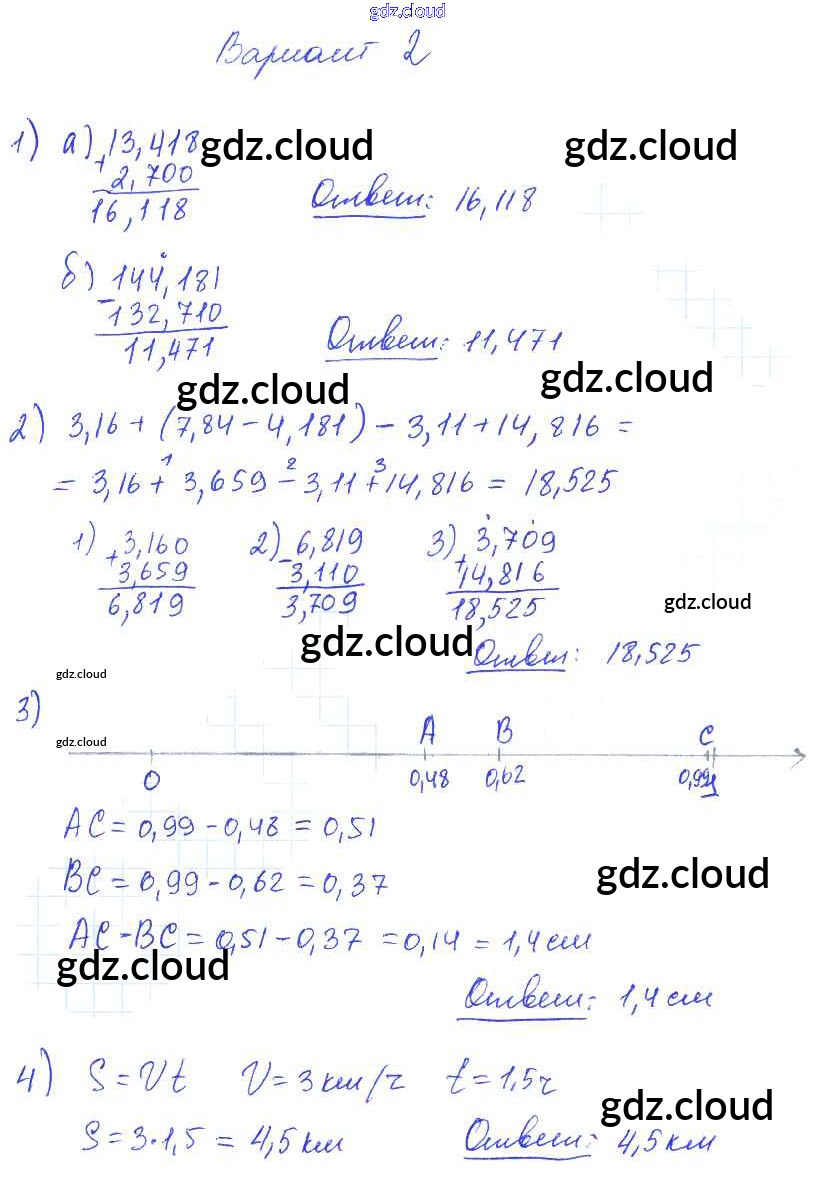 gdz.cloud
Вариант 2
1) а) + 13,418 gdz.cloud gdz.cloud
2,700
16,118 Ответ: 16,118
б) 144,181
- 132,710
11,471 Ответ: 11,471
gdz.cloud gdz.cloud
2) 3,16 + (7,84 - 4,181) - 3,11 + 14,816 =
1 2 3
= 3,16 + 3,659 - 3,11 + 14,816 = 18,525
1) + 3,160 2) - 6,819 3) + 3,709
3,659 3,110 14,816
6,819 3,709 18,525
gdz.cloud
gdz.cloud Ответ: 18,525
gdz.cloud
3)
gdz.cloud
A B C
0 0,48 0,62 0,99 1
AC = 0,99 - 0,48 = 0,51
BC = 0,99 - 0,62 = 0,37
gdz.cloud
AC - BC = 0,51 - 0,37 = 0,14 = 1,4 см
gdz.cloud
Ответ: 1,4 см
4) S = Vt V = 3 км/ч t = 1,5 ч
gdz.cloud
S = 3 · 1,5 = 4,5 км Ответ: 4,5 км